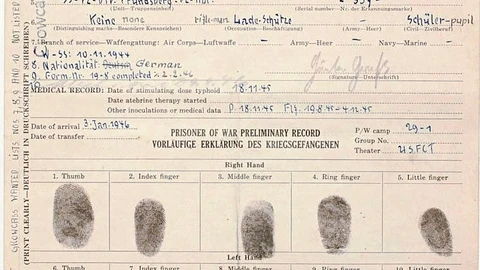 Keine none
Lade-Schütze
Schüler-pupil
(Distinguishing marks—Besondere Kennzeichen)
(Occupation)
(Civil—Zivilberuf)
7. Branch of service—Waffengattung: Air Corps—Luftwaffe
Army—Heer
Navy—Marine
W-SS: 10.11.1944
8. Nationalität: German
9. Form. Nr. 19-8 completed 2.2.46
(Signature—Unterschrift)
MEDICAL RECORD: Date of stimulating dose typhoid 18.11.45
Date atebrine therapy started
Other inoculations or medical data P. 18.11.45
Date of arrival 3 Jan. 1946
Date of transfer
PRISONER OF WAR PRELIMINARY RECORD
VORLÄUFIGE ERKLÄRUNG DES KRIEGSGEFANGENEN
P/W camp 29-1
Group No.
Theater USFET
Right Hand
1. Thumb 2. Index finger 3. Middle finger 4. Ring finger 5. Little finger
Left Hand
6. Thumb 7. Index finger 8. Middle finger 9. Ring finger 10. Little finger
(PRINT CLEARLY—DEUTLICH IN DRUCKSCHRIFT SCHREIBEN)
CROWCASS WANTED LISTS NOS 7, 8, 9 AND 10 NOT LISTED